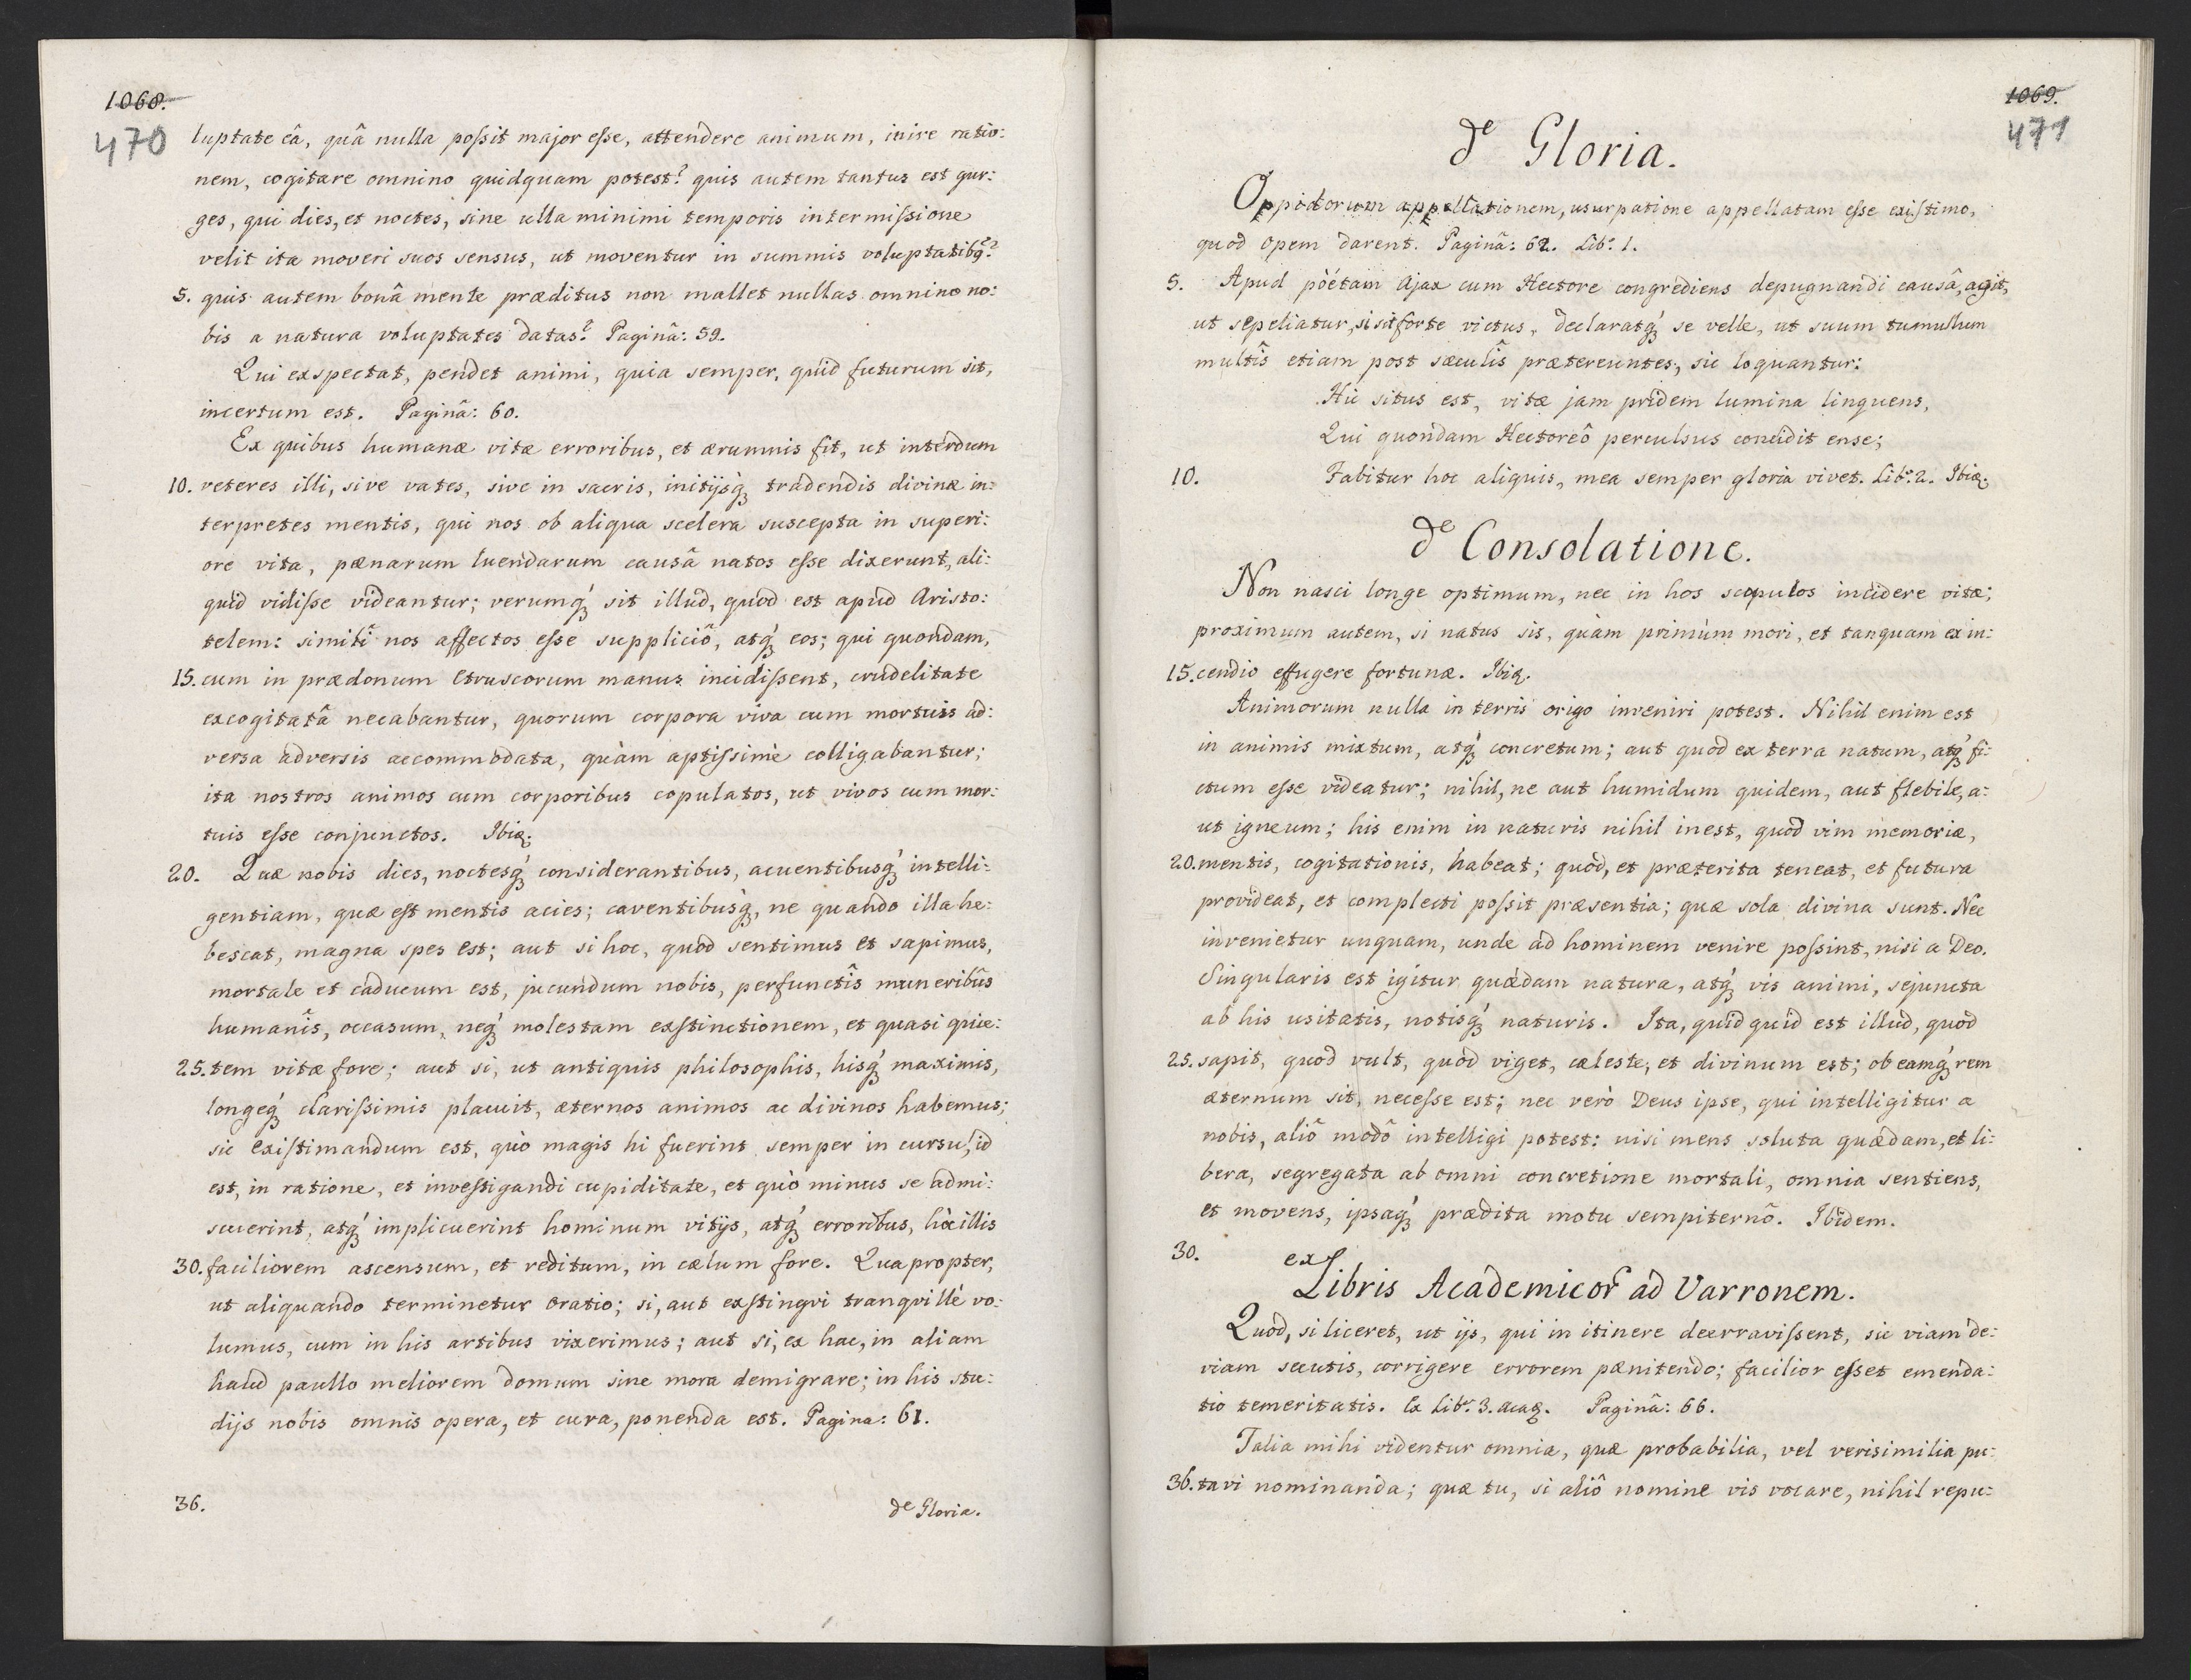 1068.
470
luptate eâ, quâ nulla possit major esse, attendere animum, inire ratio:
nem, cogitare omnino quidquam potest? quis autem tantus est gur:
ges, qui dies, et noctes, sine ulla minimi temporis intermissione
velit ita moveri suos sensus, ut moventur in summis voluptatibq́?
5. quis autem bonâ mente præditus non mallet nullas omnino no:
bis a natura voluptates datas? Paginâ: 59.
Qui exspectat, pendet animi, quia semper, quid futurum sit,
incertum est. Paginâ: 60.
Ex quibus humanæ vitæ erroribus, et ærumnis fit, ut interdum
10. veteres illi, sive vates, sive in sacris, initijsq́ tradendis divinæ in:
terpretes mentis, qui nos ob aliqua scelera suscepta in superi:
ore vita, pænarum luendarum causâ natos esse dixerunt, ali:
quid vidisse videantur; verumq́ sit illud, quod est apud Aristo:
telem: similî nos affectos esse suppliciô, atq́ eos; qui quondam,
15. cum in prædonum Etruscorum manus incidissent, crudelitate
excogitatâ necabantur, quorum corpora viva cum mortuis ad:
versa adversis accommodata, quàm aptissimè colligabantur;
ita nostros animos cum corporibus copulatos, ut vivos cum mor:
tuis esse conjunctos. Ibiq.
20. Quæ nobis dies, noctesq́ considerantibus, acuentibusq́ intelli:
gentiam, quæ est mentis acies; caventibusq́, ne quando illa he:
bescat, magna spes est; aut si hoc, quod sentimus et sapimus,
mortale et caducum est, jucundum nobis, perfunctîs muneribûs
humanîs, occasum, neq́ molestam exstinctionem, et quasi quie:
25. tem vitæ fore; aut si, ut antiquis philosophis, hisq́ maximis,
longeq́ clarissimis placuit, æternos animos ac divinos habemus;
sic existimandum est, quò magis hi fuerint semper in cursu, id
est, in ratione, et investigandi cupiditate, et quò minus se admi:
scuerint, atq́ implicuerint hominum vitijs, atq́ erroribus, hòc illis
30. faciliorem ascensum, et reditum, in cælum fore. Quapropter,
ut aliquando terminetur oratio; si, aut exstingvi tranqvillè vo:
lumus, cum in his artibus vixerimus; aut si, ex hac, in aliam
haud paullo meliorem domum sine mora demigrare; in his stu:
dijs nobis omnis opera, et cura, ponenda est. Pagina: 61.
36. de Gloria.
1069.
471
de Gloria.
Oppidorum appellationem, usurpatione appellatam esse existimo,
quod opem darent. Paginâ: 62. Libr. 1.
5. Apud pöétam Ajax cum Hectore congrediens depugnandi causâ, agit,
ut sepeliatur, si sit forte victus, declaratq́ se velle, ut suum tumulum
multîs etiam post sæculîs prætereuntes, sic loquantur:
Hic situs est, vitæ jam pridem lumina linquens,
Qui quondam Hectoreô perculsus concidit ense;
10. Fabitur hoc aliquis, mea semper gloria vivet. Libr. 2. Ibiq.
de Consolatione.
Non nasci longe optimum, nec in hos scopulos incidere vitæ;
proximum autem, si natus sis, quàm primùm mori, et tanquam ex in:
15. cendio effugere fortunæ. Ibiq.
Animorum nulla in terris origo inveniri potest. Nihil enim est
in animis mixtum, atq́ concretum; aut quod ex terra natum, atq́ fi:
ctum esse videatur; nihil, ne aut humidum quidem, aut flebile, a:
ut igneum; his enim in naturis nihil inest, quod vim memoriæ,
20. mentis, cogitationis, habeat; quod, et præterita teneat, et futura
provideat, et complecti possit præsentia; quæ sola divina sunt. Nec
invenietur unquam, unde ad hominem venire possint, nisi a Deo.
Singularis est igitur quædam natura, atq́ vis animi, sejuncta
ab his usitatis, notisq́ naturis. Ita, quidquid est illud, quod
25. sapit, quod vult, quod viget, cæleste, et divinum est; ob eamq́ rem
æternum sit, necesse est; nec verò Deus ipse, qui intelligitur a
nobis, aliô modô intelligi potest: nisi mens soluta quædam, et li:
bera, segregata ab omni concretione mortali, omnia sentiens,
et movens, ipsaq́ prædita motu sempiternô. Ibidem.
30. ex
Libris Academicor ad Varronem.
Quod, si liceret, ut ijs, qui in itinere deerravissent, sic viam de:
viam secutis, corrigere errorem pænitendo; facilior esset emenda:
tio temeritatis. Ex Libr. 3. acaq. Paginâ: 66.
Talia mihi videntur omnia, quæ probabilia, vel verisimilia pu:
36. tavi nominanda; quæ tu, si aliô nomine vis vocare, nihil repu: